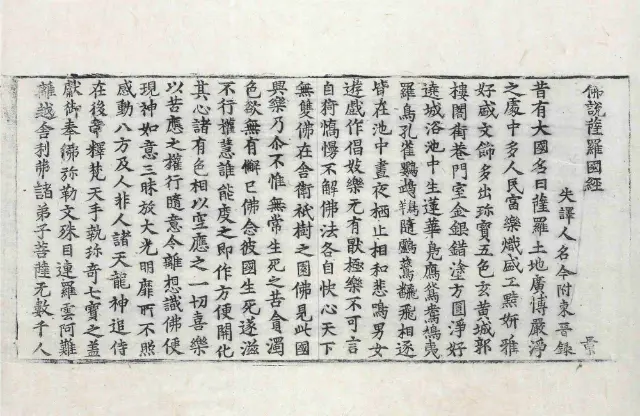 佛說薩羅國經
失譯人名今附東晉錄 景
昔有大國名曰薩羅土地廣博嚴淨
之處中多人民富樂熾盛工黠妍雅
好咸文飾多出珎寶五色玄黃城郭
樓閣街巷門室金銀錯塗方圓淨好
遶城洛池中生蓮華鳧鴈鴛鴦鴆夷
羅鳥孔雀鸚鵡鶬隨鷗鷺飜飛相逐
皆在池中晝夜栖止相和悲鳴男女
遊戲作倡妓樂元有猒極樂不可言
自猗憍慢不解佛法各自快心天下
無雙佛在舍衛祇樹之園佛見此國
興樂乃尒不惟無常生死之苦貪濁
色欲無有懈已佛念彼國生死遂滋
不行權慧誰能度之即作方便開化
其心諸有色相以空應之一切喜樂
以苦應之權行隨意令離想識佛便
現神如意三昧放大光明靡所不照
感動八方及人非人諸天龍神追侍
在後帝釋梵天手執珎奇七寶之蓋
獻御奉佛弥勒文殊目連羅雲阿難
離越舍利弗諸弟子菩薩无數千人